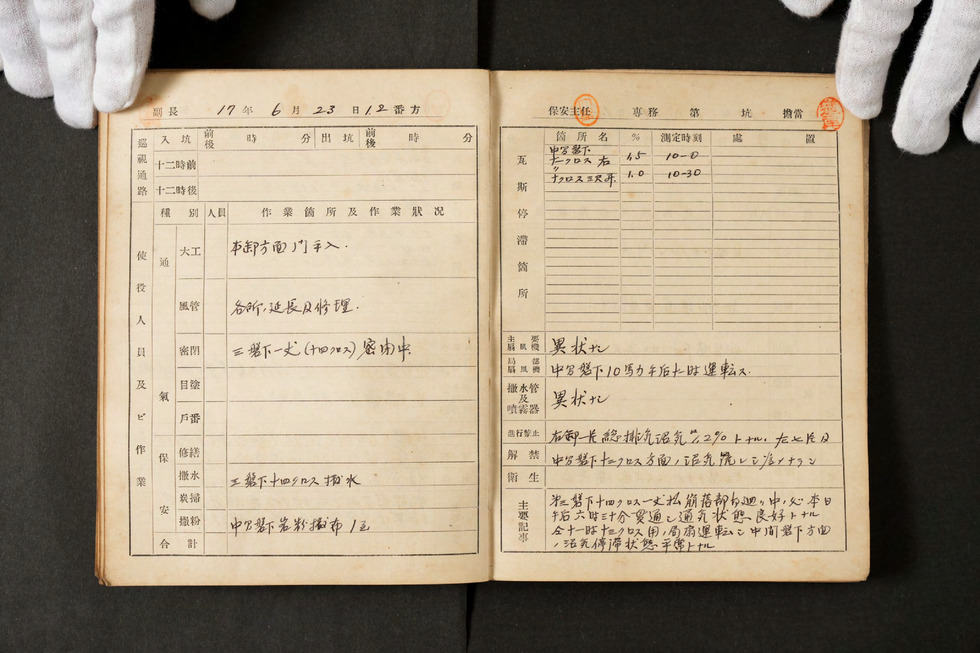 副長 17年 6月 23日 1.2番方
巡視通路 入坑 前後 時 分 出坑 前後 時 分
十二時前
十二時後
使役人員及ビ作業
種別 人員 作業箇所及作業狀況
通氣
大工 本卸方面ノ門手入.
風管 各所ノ延長及修理.
密閉 三盤下一丈(十四クロス)密閉中.
目塗
戶番
保安
修繕
撒水 工盤下十四クロス撒水
炭掃
撒粉 中写盤下岩粉撒布1名
合計
保安主任 専務 第 坑 擔當
瓦斯停滯箇所
箇所名 % 測定時刻 處置
中写盤下
十一クロス右 1.5 10-0
〃
十クロス三尺昇. 1.0 10-30
主要扇風機 異状ナシ
局部扇風機 中写盤下10馬力午后七時運転ス.
撒水管及噴霧器 異状ナシ
進行禁止 右卸一片総排気沼気 2% トナル.
解禁 中写盤下十二クロス方面ノ沼気
衛生
主要記事
第三盤下十四クロス一丈松崩落部句廻リ中ノ処本日
午后六時三十分貫通シ通気状態良好トナル
仝十一時十二クロス用ノ局扇運転シ中間盤下方面
ノ沼気停滞状態平常トナル